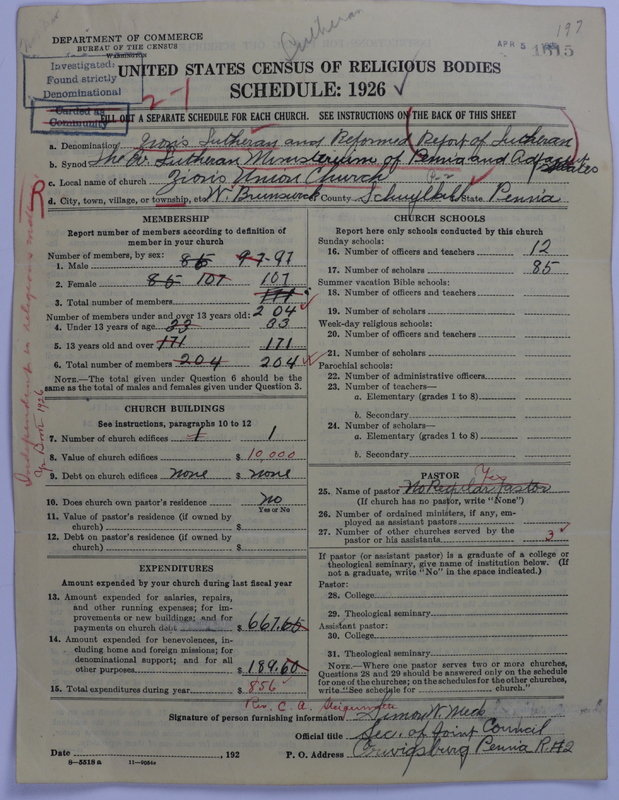 197
Lutheran
DEPARTMENT OF COMMERCE
BUREAU OF THE CENSUS
WASHINGTON
APR 5
1615
Investigated:
Found strictly
Denominational
Carded as
Community
2-1
UNITED STATES CENSUS OF RELIGIOUS BODIES
SCHEDULE: 1926
FILL OUT A SEPARATE SCHEDULE FOR EACH CHURCH. SEE INSTRUCTIONS ON THE BACK OF THIS SHEET
a. Denomination Zion's Lutheran and Reformed Report of Lutheran
b. Synod The Ev. Lutheran Ministerium of Pennia and Adjacent States
c. Local name of church Zion's Union Church
d. City, town, village, or township, etc. W. Brunswick County Schuylkill State Pennia
R
MEMBERSHIP
Report number of members according to definition of
member in your church
Number of members, by sex:
1. Male 97 97
2. Female 107 107
3. Total number of members 171
204
Number of members under and over 13 years old:
4. Under 13 years of age 33 33
5. 13 years old and over 171 171
6. Total number of members 204 204
NOTE.—The total given under Question 6 should be the
same as the total of males and females given under Question 3.
CHURCH BUILDINGS
See instructions, paragraphs 10 to 12
7. Number of church edifices 1 1
8. Value of church edifices $ 10,000
9. Debt on church edifices none $ none
10. Does church own pastor's residence no
Yes or No
11. Value of pastor's residence (if owned by
church) $
12. Debt on pastor's residence (if owned by
church) $
EXPENDITURES
Amount expended by your church during last fiscal year
13. Amount expended for salaries, repairs,
and other running expenses; for im-
provements or new buildings; and for
payments on church debt $ 667.65
14. Amount expended for benevolences, in-
cluding home and foreign missions; for
denominational support; and for all
other purposes $ 189.60
15. Total expenditures during year $ 856
CHURCH SCHOOLS
Report here only schools conducted by this church
Sunday schools:
16. Number of officers and teachers 12
17. Number of scholars 85
Summer vacation Bible schools:
18. Number of officers and teachers
19. Number of scholars
Week-day religious schools:
20. Number of officers and teachers
21. Number of scholars
Parochial schools:
22. Number of administrative officers
23. Number of teachers—
a. Elementary (grades 1 to 8)
b. Secondary
24. Number of scholars—
a. Elementary (grades 1 to 8)
b. Secondary
PASTOR
Yes
25. Name of pastor No Regular Pastor
(If church has no pastor, write "None")
26. Number of ordained ministers, if any, em-
ployed as assistant pastors
27. Number of other churches served by the
pastor or his assistants 3
If pastor (or assistant pastor) is a graduate of a college or
theological seminary, give name of institution below. (If
not a graduate, write "No" in the space indicated.)
Pastor:
28. College
29. Theological seminary
Assistant pastor:
30. College
31. Theological seminary
NOTE.—Where one pastor serves two or more churches,
Questions 28 and 29 should be answered only on the schedule
for one of the churches; on the schedules for the other churches,
write "See schedule for church."
Rev. C. A.
Signature of person furnishing information
Official title Sec. of Joint Council
Date , 192 P. O. Address Orwigsburg Pennia R#2
8—5518 a